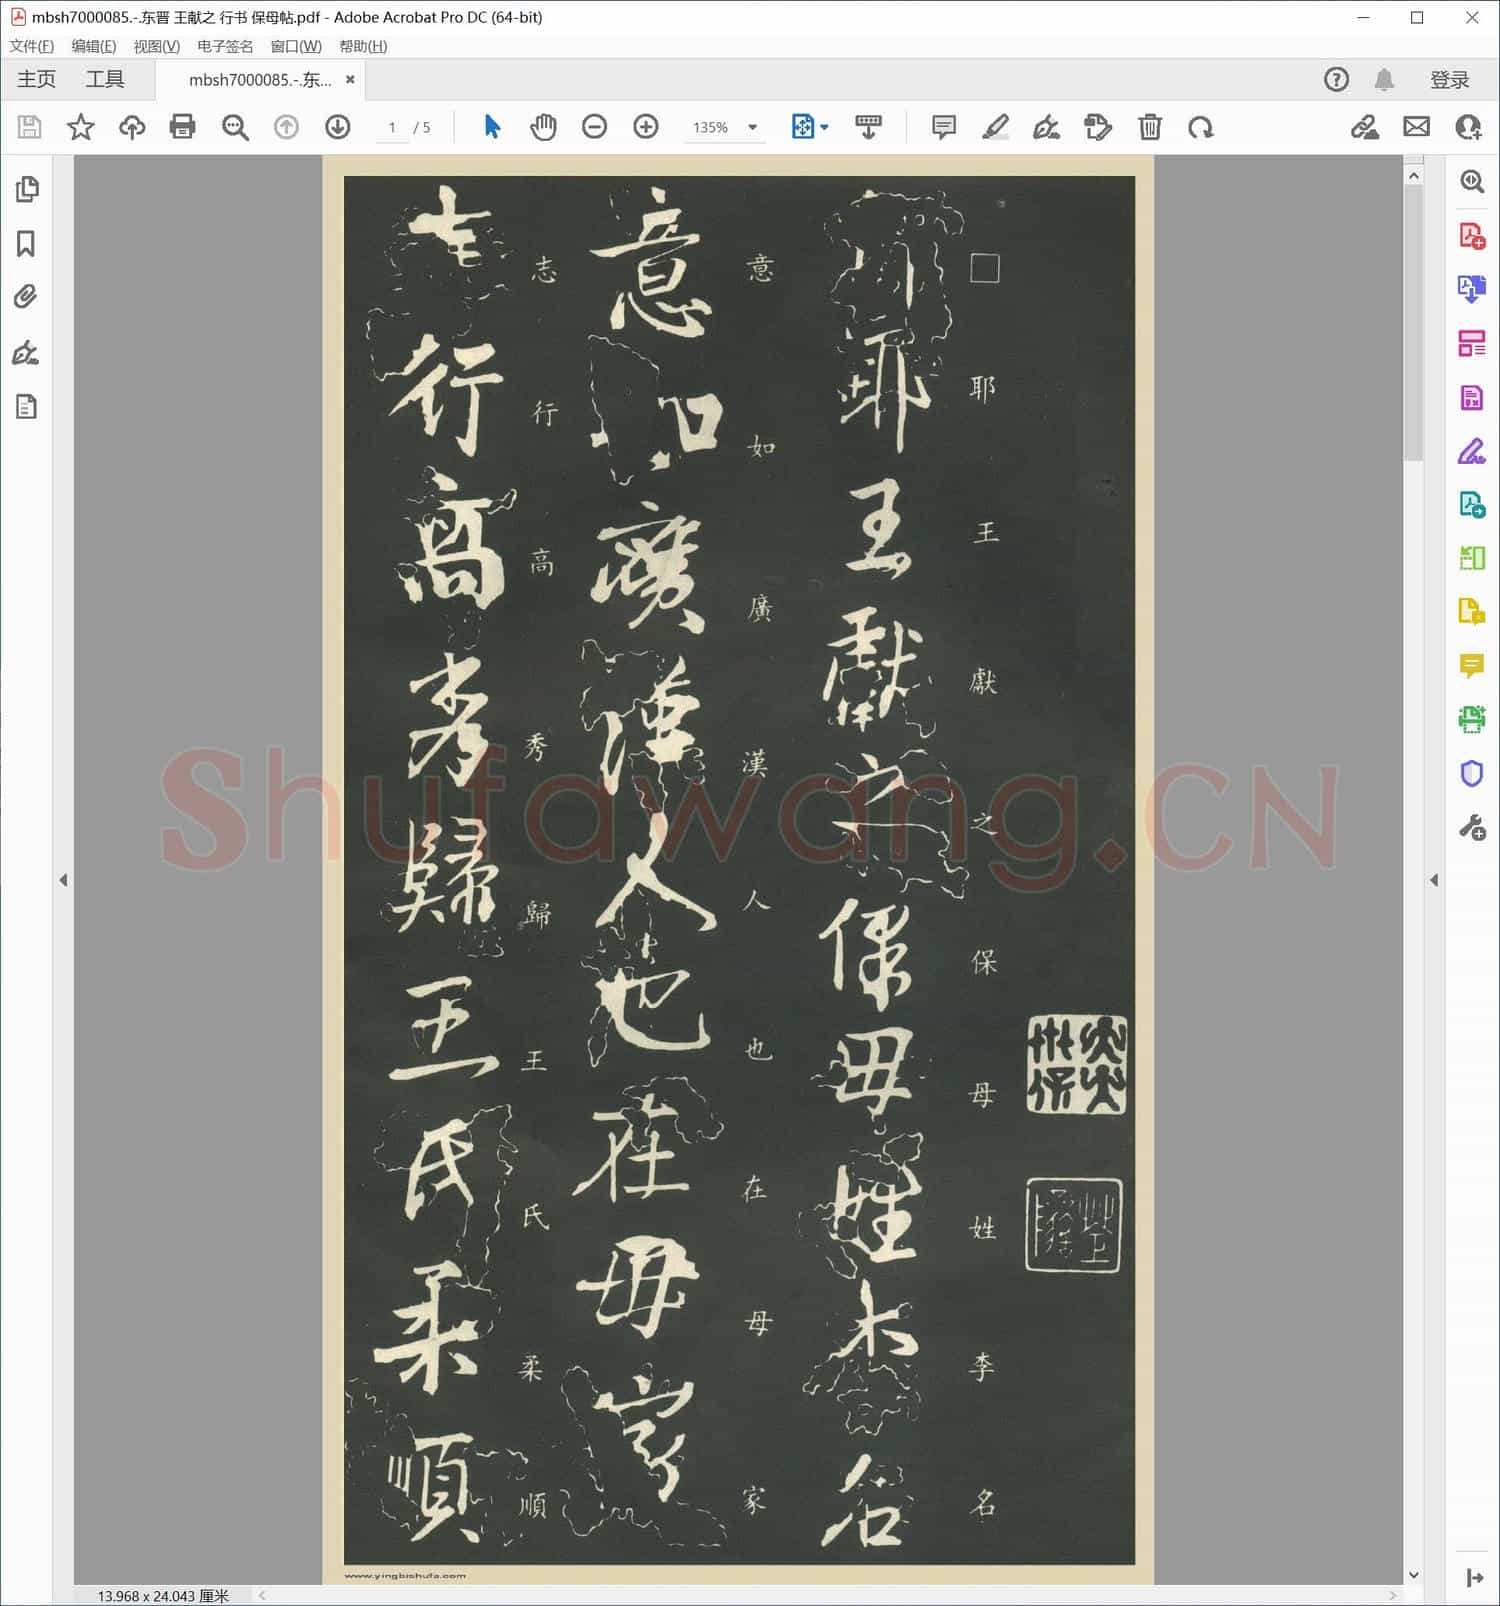 mbsh7000085.-.东晋 王献之 行书 保母帖.pdf - Adobe Acrobat Pro DC (64-bit)
文件(F) 编辑(E) 视图(V) 电子签名 窗口(W) 帮助(H)
主页 工具 mbsh7000085.-.东... × 登录
1 / 5 135%
□耶王獻之保母姓李名
耶王獻之保母姓李名
意如廣漢人也在母家
意如廣漢人也在母家
志行高秀歸王氏柔順
志行高秀歸王氏柔順
Shufawang.CN
www.yingbishufa.com
13.968 x 24.043 厘米